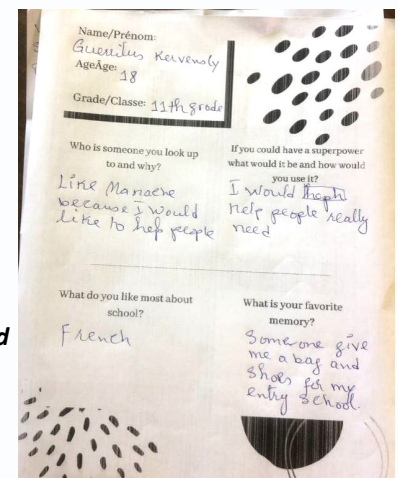 Name/Prénom:
Guerritus Kervensly
AgeÂge:
18
Grade/Classe: 11th grade
Who is someone you look up
to and why?
Like Manache
because I would
like to hep people
If you could have a superpower
what would it be and how would
you use it?
I would heph
help people really
need
What do you like most about
school?
French
What is your favorite
memory?
Someone give
me a bag and
shoes for my
entry school.
d